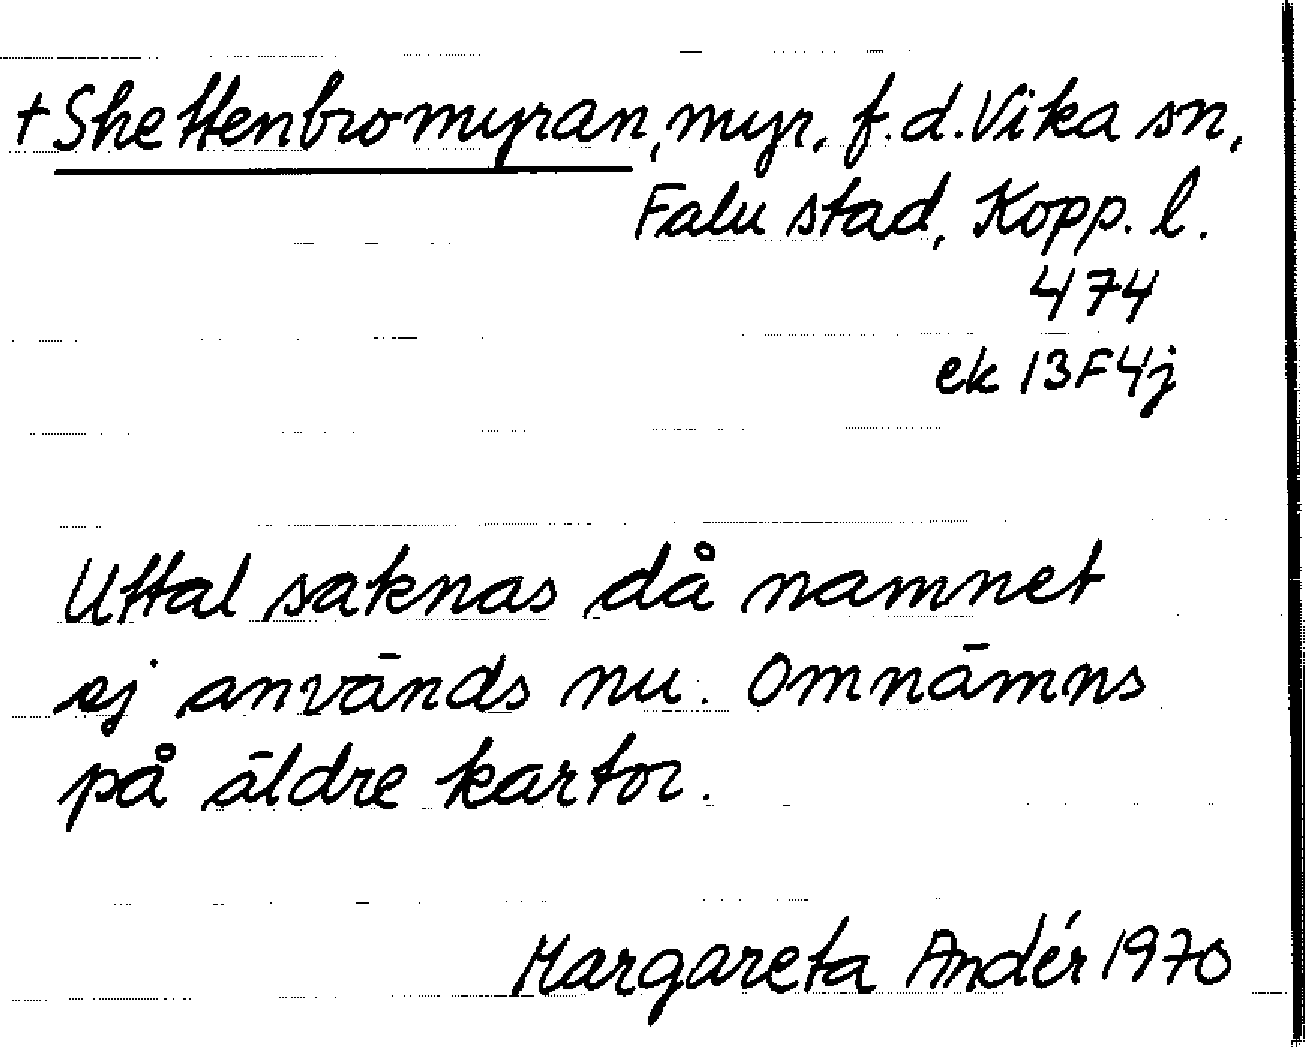 +Skettenbromyran, myr. f.d. Vika sn,
Falu stad, Kopp. l.
474
ek 13F4j
Uttal saknas då namnet
ej används nu. Omnämns
på äldre kartor.
Margareta Andér 1970